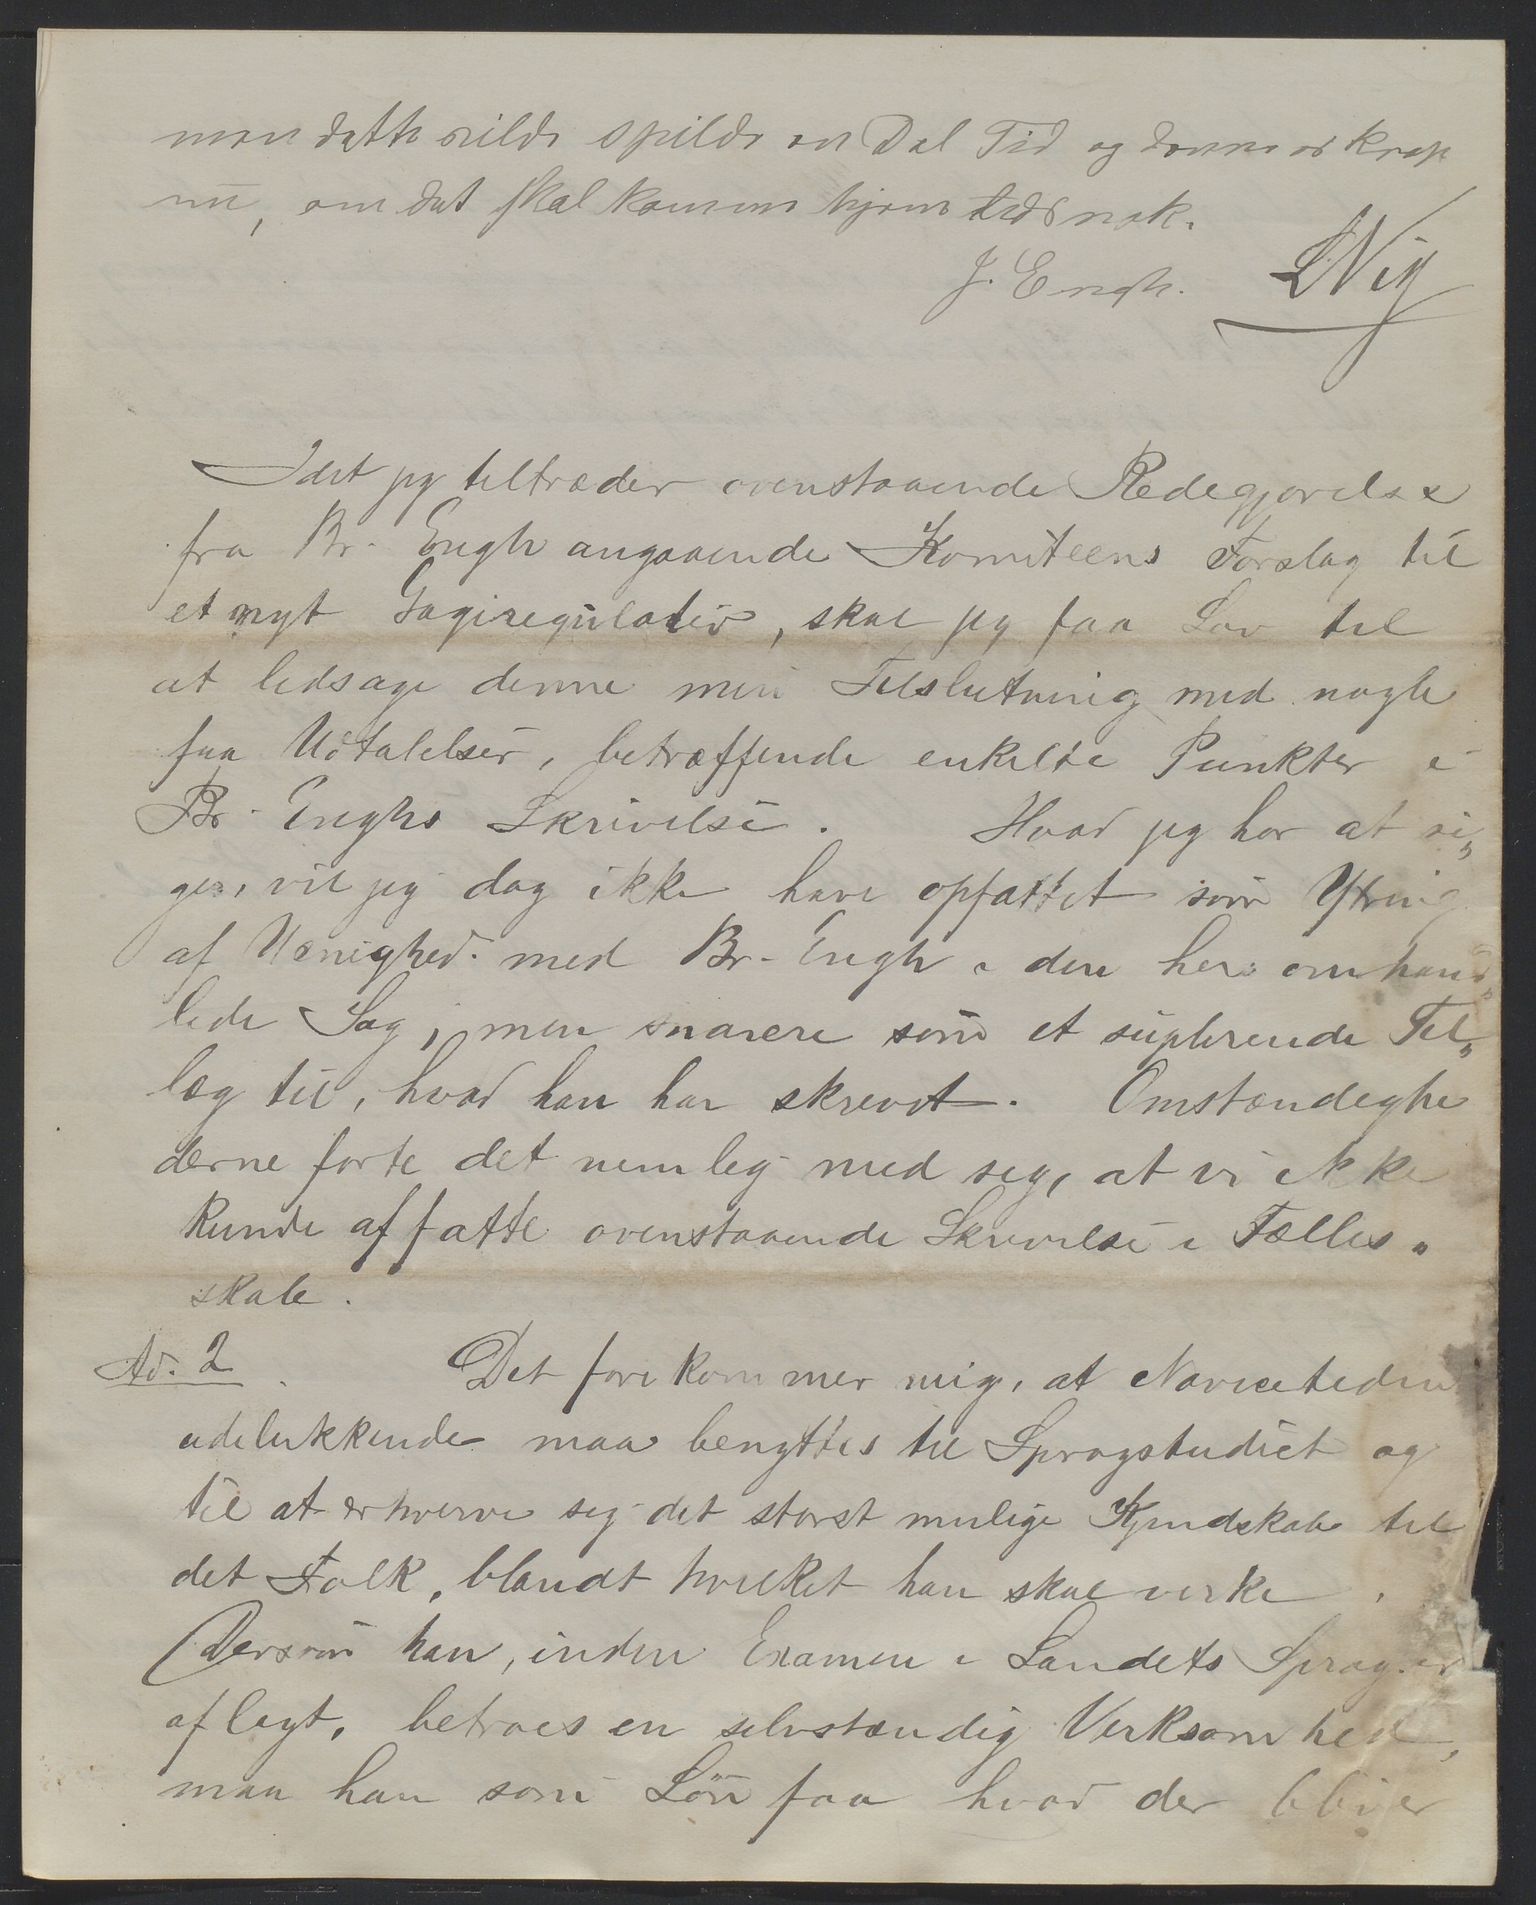 men dette vilde spilde en Del Tid og denne er knap
nu, om det skal komme hjem tids nok.
J. Engh. LVig
Idet jeg tiltræder ovenstaaende Redegjørelse
fra Br. Engh angaaende Komiteens Forslag til
et nyt Gageregulativ, skal jeg faa Lov til
at ledsage denne min Tilslutning med nogle
faa Udtalelser, betræffende enkelte Punkter i
Br. Enghs Skrivelse. Hvad jeg har at si„
ge, vil jeg dog ikke have opfattet som Ytring
af Uenighed med Br. Engh i den her omhand„
lede Sag, men snarere som et suplerende Til„
læg til, hvad han har skrevet. Omstændighe
derne førte det nemlig med seg, at vi ikke
kunde affatte ovenstaaende Skrivelse i Fælles„
skab.
Ad. 2 Det forekommer mig, at Novicetiden
udelukkende maa benyttes til Sprogstudiet og
til at erhverve sig det størst mulige Kjendskab til
det Folk, blandt hvilket han skal virke.
Dersom han, inden Examen i Landets Sprog er
aflagt, betroes en selvstændig Virksomhed,
maa han som Løn faa hvad der bliver